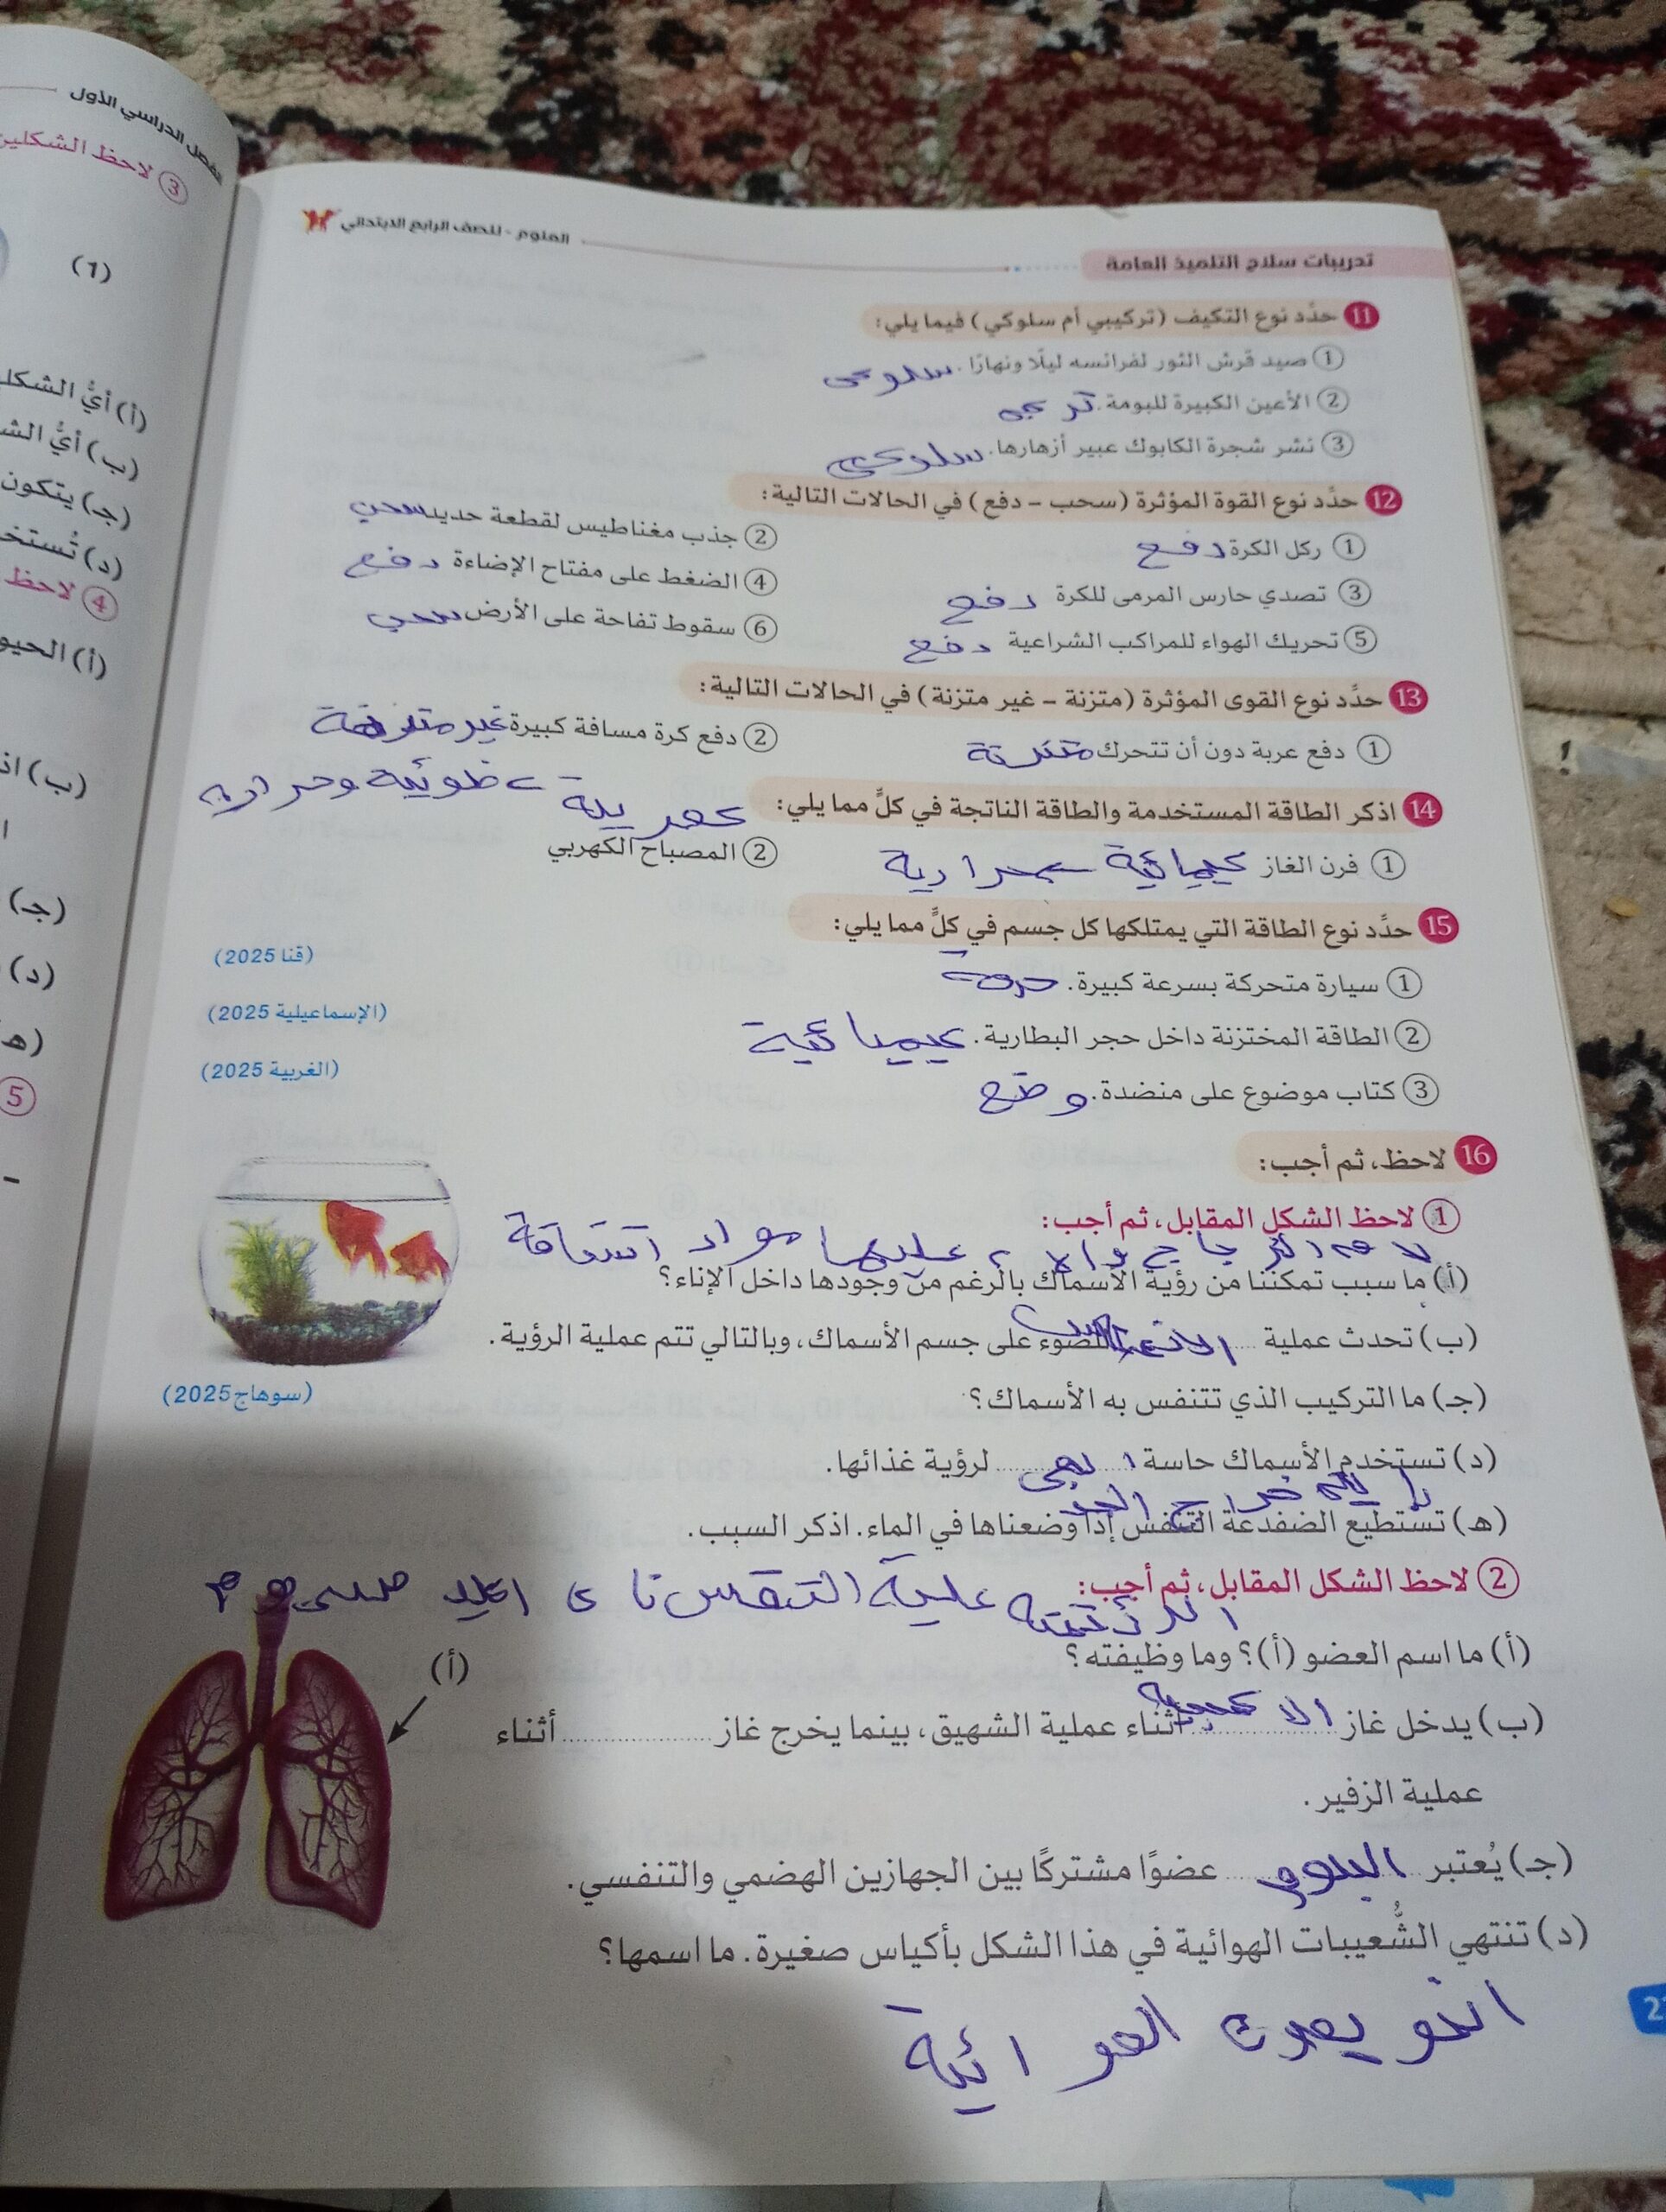 الفصل الدراسي الأول
③ لاحظ الشكلين
(1)
(أ) أيُّ
(ب) أيُّ
(جـ) يتكون
(د)
④ لاحظ
(أ)
(ب)
(جـ)
(د)
5
العلوم - للصف الرابع الابتدائي
تدريبات سلاح التلميذ العامة
11 حدِّد نوع التكيف (تركيبي أم سلوكي) فيما يلي:
① صيد قرش الثور لفرائسه ليلًا ونهارًا. سلوكي
② الأعين الكبيرة للبومة.
③ نشر شجرة الكابوك عبير أزهارها. سلوكي
12 حدِّد نوع القوة المؤثرة (سحب - دفع) في الحالات التالية:
① ركل الكرة دفع ② جذب مغناطيس لقطعة حديد سحب
③ تصدي حارس المرمى للكرة دفع ④ الضغط على مفتاح الإضاءة دفع
⑤ تحريك الهواء للمراكب الشراعية دفع ⑥ سقوط تفاحة على الأرض سحب
13 حدِّد نوع القوى المؤثرة (متزنة - غير متزنة) في الحالات التالية:
① دفع عربة دون أن تتحرك متزنة ② دفع كرة مسافة كبيرة غير متزنة
14 اذكر الطاقة المستخدمة والطاقة الناتجة في كلٍّ مما يلي:
① فرن الغاز كيميائية حرارية ② المصباح الكهربي
15 حدِّد نوع الطاقة التي يمتلكها كل جسم في كلٍّ مما يلي:
① سيارة متحركة بسرعة كبيرة. (قنا 2025)
② الطاقة المختزنة داخل حجر البطارية. كيميائية (الإسماعيلية 2025)
③ كتاب موضوع على منضدة. وضع (الغربية 2025)
16 لاحظ، ثم أجب:
① لاحظ الشكل المقابل، ثم أجب:
(أ) ما سبب تمكننا من رؤية الأسماك بالرغم من وجودها داخل الإناء؟
(ب) تحدث عملية ......... للضوء على جسم الأسماك، وبالتالي تتم عملية الرؤية.
(جـ) ما التركيب الذي تتنفس به الأسماك؟ (سوهاج 2025)
(د) تستخدم الأسماك حاسة ......... لرؤية غذائها.
(هـ) تستطيع الضفدعة التنفس إذا وضعناها في الماء. اذكر السبب.
② لاحظ الشكل المقابل، ثم أجب:
(أ) ما اسم العضو (أ)؟ وما وظيفته؟
(أ)
(ب) يدخل غاز ......... أثناء عملية الشهيق، بينما يخرج غاز ......... أثناء
عملية الزفير.
(جـ) يُعتبر البلعوم عضوًا مشتركًا بين الجهازين الهضمي والتنفسي.
(د) تنتهي الشُّعيبات الهوائية في هذا الشكل بأكياس صغيرة. ما اسمها؟
الهوائية